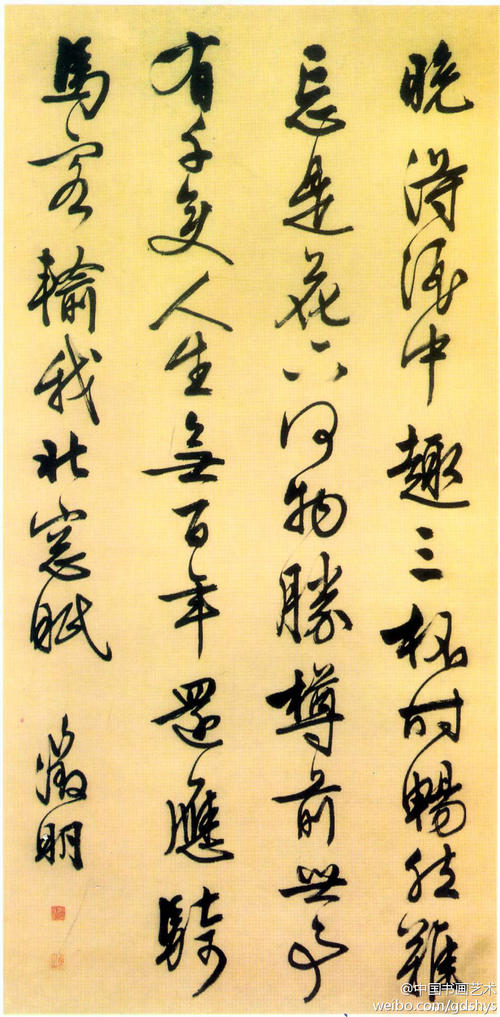 晚得酒中趣三杯时暢然難
忘是花下何物勝樽前世事
有千变人生無百年還應騎
馬客輸我北窓眠
徵明
@中国书画艺术
weibo.com/gdshys